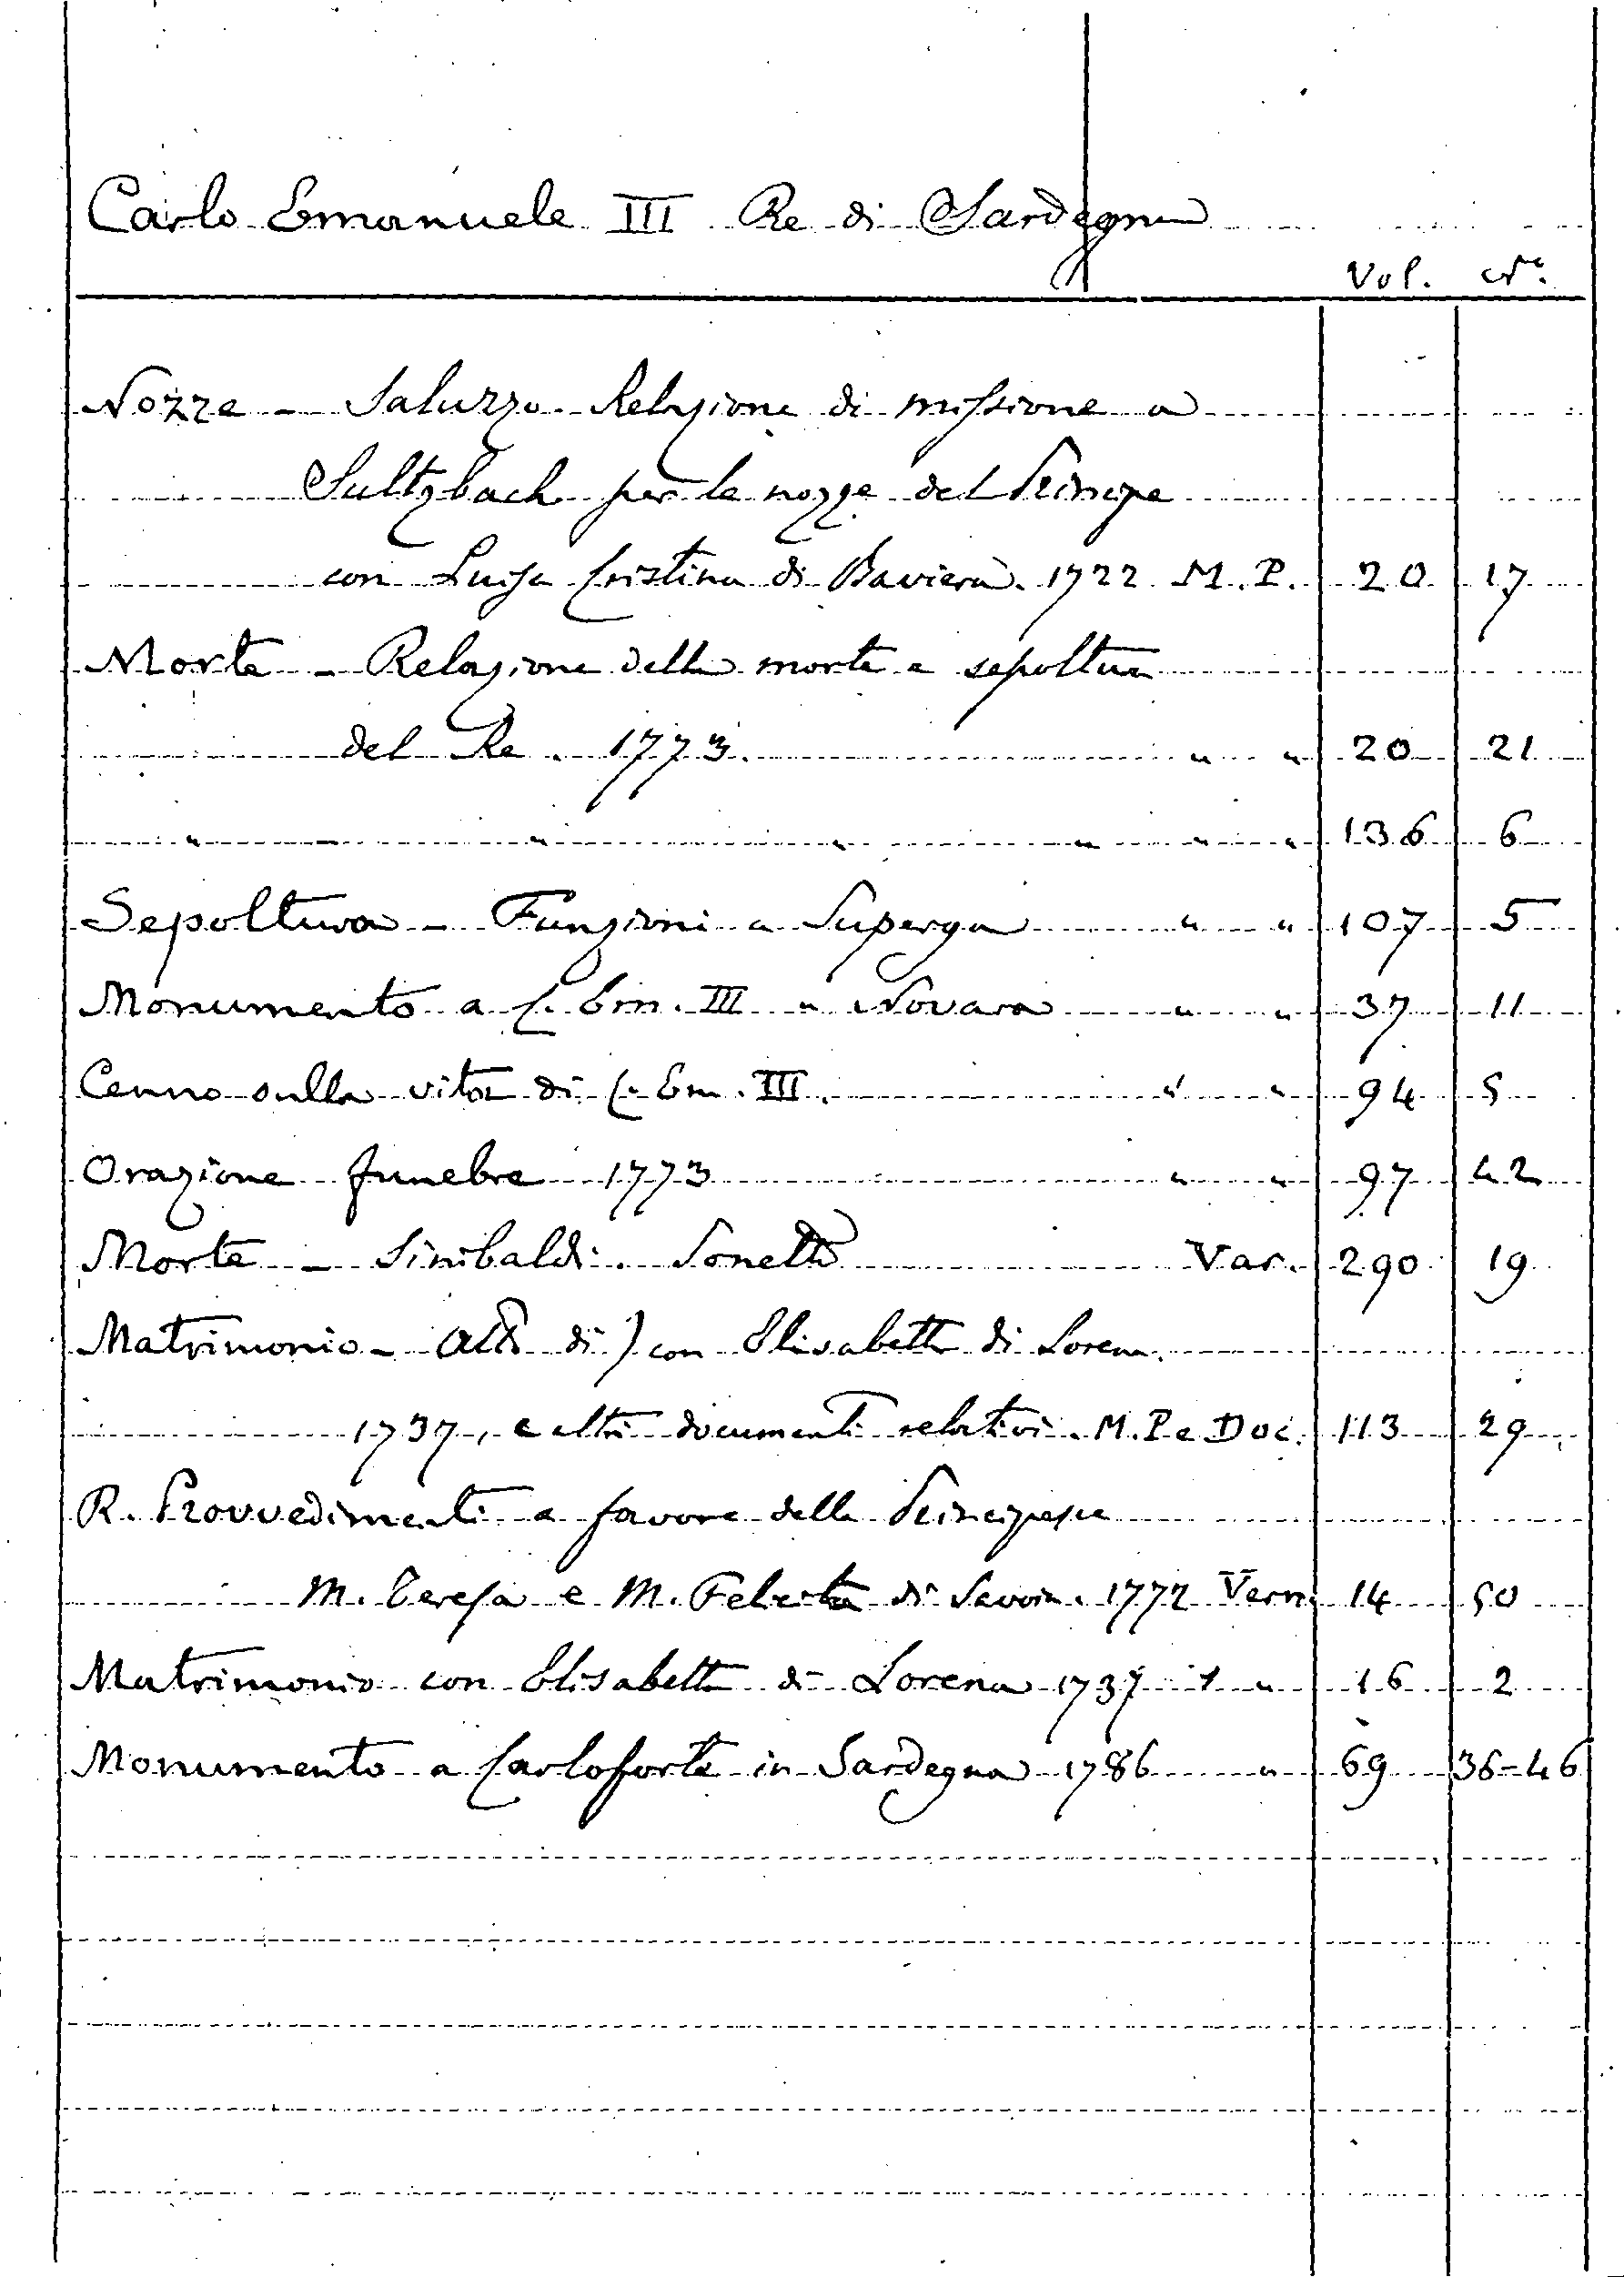 Carlo Emanuele III Re di Sardegna
Vol. N.
Nozze - Saluzzo. Relazione di missione a
Sultzbach per le nozze del Principe
con Luisa Cristina di Baviera. 1722 M. P. 20 17
Morte - Relazione della morte e sepoltura
del Re. 1773. " " 20 21
" " " " " " 136 6
Sepoltura - Funzioni a Superga " " 107 5
Monumento a C. Em. III a Novara " " 37 11
Cenno sulla vita di C. Em. III. " " 94 5
Orazione funebre 1773 " " 97 42
Morte - Sinibaldi. Sonetto Var. 290 19
Matrimonio - Atto di) con Elisabetta di Lorena.
1737, e altri documenti relativi. M. P e Doc. 113 29
R. Provvedimenti a favore delle Principesse
M. Teresa e M. Felicita di Savoia. 1772 Vern. 14 50
Matrimonio con Elisabetta di Lorena 1737 " " 16 2
Monumento a Carloforte in Sardegna 1786 " 69 36-46